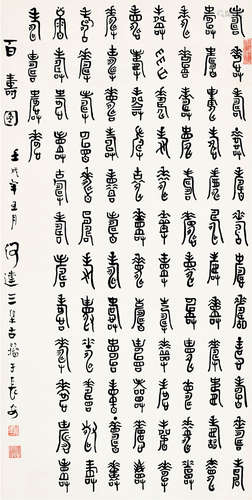 壽壽壽壽壽壽壽壽壽壽壽壽
壽壽壽壽壽壽壽壽壽壽壽壽
壽壽壽壽壽壽壽壽壽壽壽壽
壽壽壽壽壽壽壽壽壽壽壽壽
壽壽壽壽壽壽壽壽壽壽壽壽
壽壽壽壽壽壽壽壽壽壽壽壽
壽壽壽壽壽壽壽壽壽壽壽壽
壽壽壽壽壽壽壽壽壽壽壽壽
壽壽壽壽
百壽圖 壬戌年五月 何達三集古于長安